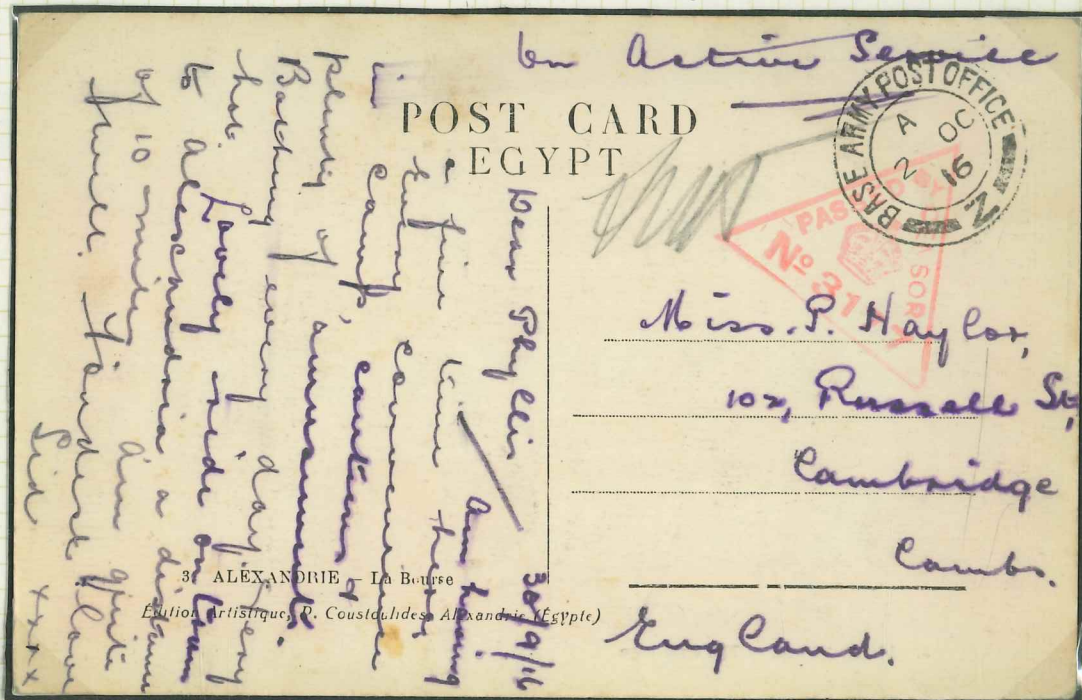 On Active Service
POST CARD
EGYPT
BASE ARMY POST OFFICE
Z
A
2 OC
16
PASSED BY
CENSOR
No 31
Miss. P. Naylor,
102, Russell St,
Cambridge
Cambs.
England.
30/9/16
Dear Phyllis
Am having
a fine time here,
every convenience
in camp, canteens &
plenty of amusements.
Bathing every day, very
hot. Lovely ride on tram
to Alexandria a distance
of 10 miles Am quite
well. Fondest Love
Sid xxxx
3. ALEXANDRIE – La Bourse
Édition Artistique, P. Coustoulides, Alexandrie (Égypte)